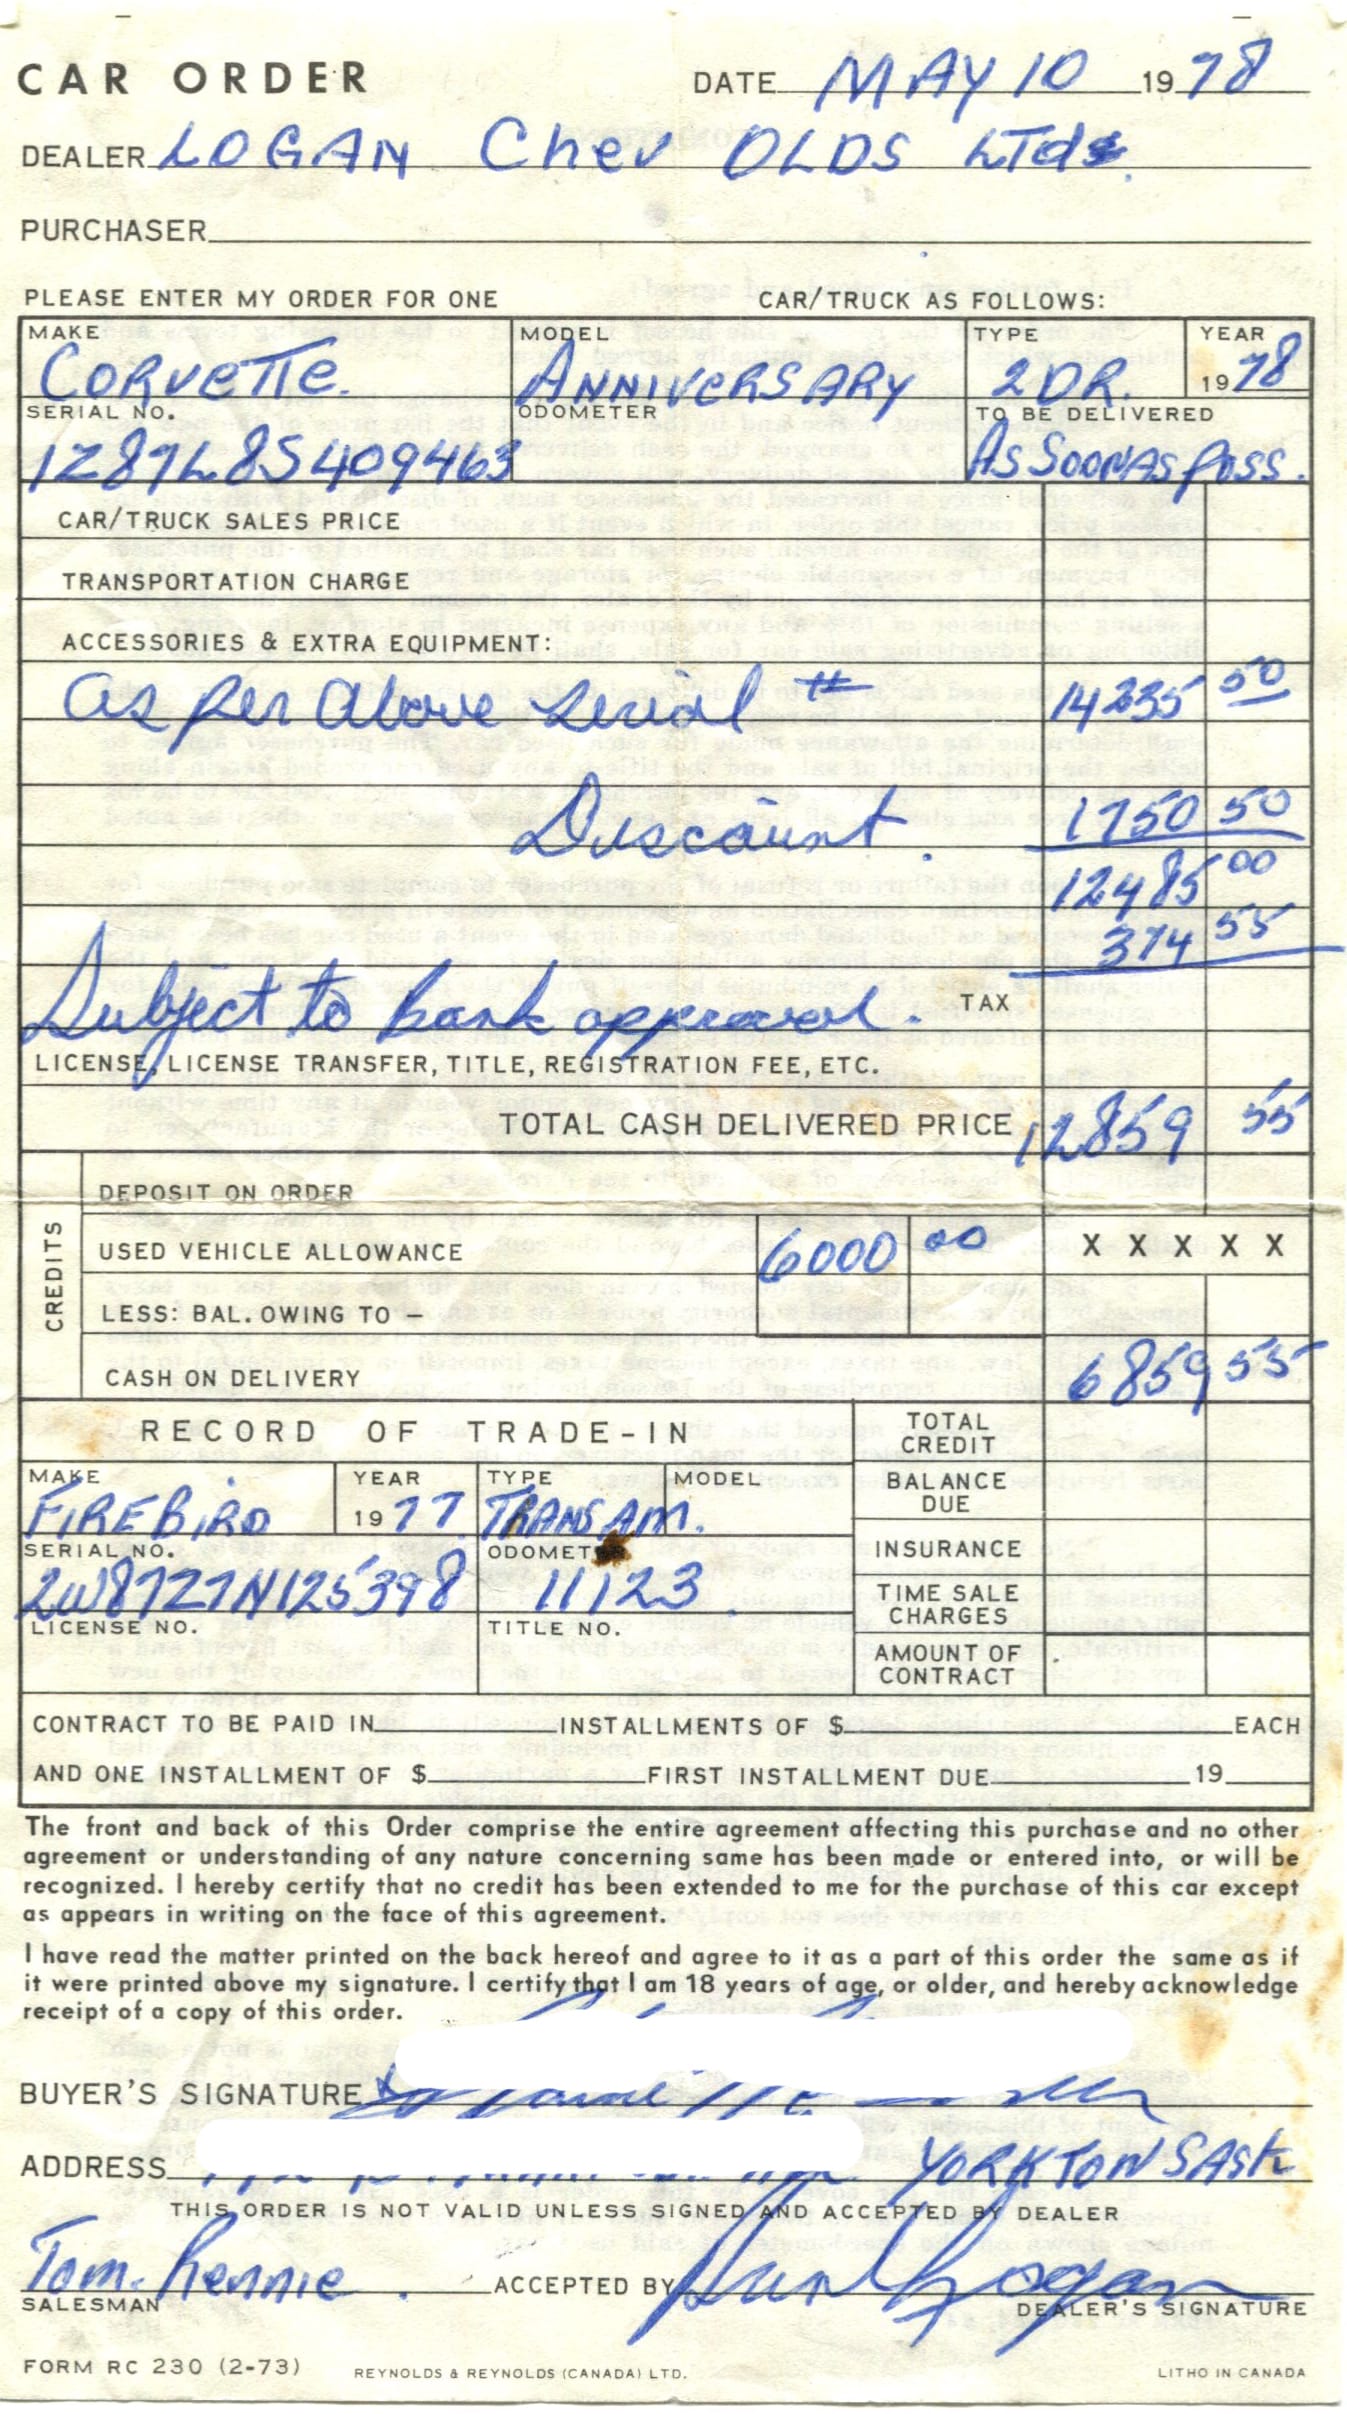 CAR ORDER DATE MAY 10 1978
DEALER LOGAN Chev OLDS LTd
PURCHASER
PLEASE ENTER MY ORDER FOR ONE CAR/TRUCK AS FOLLOWS:
MAKE MODEL TYPE YEAR
CORVETTE. ANNIVERSARY 2 DR. 1978
SERIAL NO. ODOMETER TO BE DELIVERED
1Z87L8S409463 AS SOON AS POSS.
CAR/TRUCK SALES PRICE
TRANSPORTATION CHARGE
ACCESSORIES & EXTRA EQUIPMENT:
as per above serial # 14235 50
Discount. 1750 50
12485 00
374 55
Subject to bank approval. TAX
LICENSE, LICENSE TRANSFER, TITLE, REGISTRATION FEE, ETC.
TOTAL CASH DELIVERED PRICE 12859 55
CREDITS
DEPOSIT ON ORDER
USED VEHICLE ALLOWANCE 6000 00 X X X X X
LESS: BAL. OWING TO –
CASH ON DELIVERY 6859 55
RECORD OF TRADE-IN TOTAL CREDIT
MAKE YEAR TYPE MODEL BALANCE DUE
FIREBIRD 1977 TRANS AM.
SERIAL NO. ODOMETER INSURANCE
2W87Z7N125398 11123 TIME SALE CHARGES
LICENSE NO. TITLE NO.
AMOUNT OF CONTRACT
CONTRACT TO BE PAID IN INSTALLMENTS OF $ EACH
AND ONE INSTALLMENT OF $ FIRST INSTALLMENT DUE 19
The front and back of this Order comprise the entire agreement affecting this purchase and no other
agreement or understanding of any nature concerning same has been made or entered into, or will be
recognized. I hereby certify that no credit has been extended to me for the purchase of this car except
as appears in writing on the face of this agreement.
I have read the matter printed on the back hereof and agree to it as a part of this order the same as if
it were printed above my signature. I certify that I am 18 years of age, or older, and hereby acknowledge
receipt of a copy of this order.
BUYER'S SIGNATURE
ADDRESS YORKTON SASK
THIS ORDER IS NOT VALID UNLESS SIGNED AND ACCEPTED BY DEALER
Tom. Rennie. ACCEPTED BY Logan
SALESMAN DEALER'S SIGNATURE
FORM RC 230 (2-73) REYNOLDS & REYNOLDS (CANADA) LTD. LITHO IN CANADA